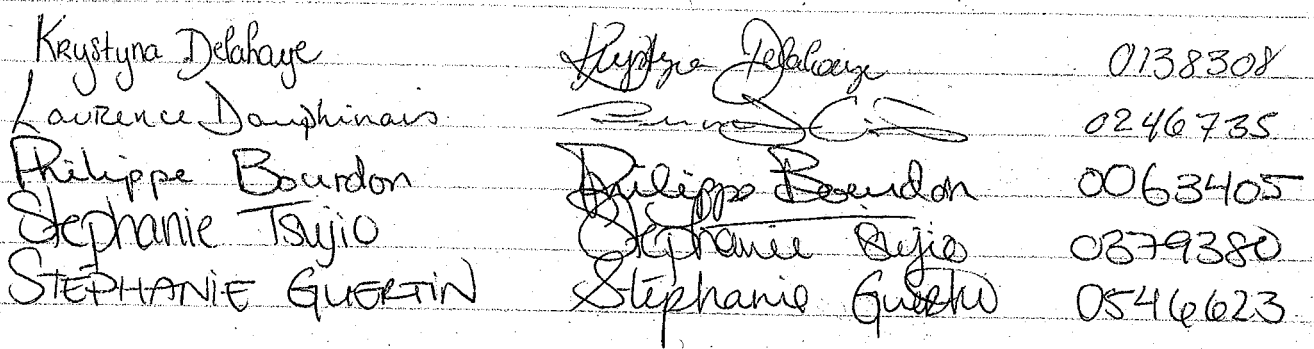 Krystyna Delahaye Krystyna Delahaye 0138308
Laurence Dauphinais 0246735
Philippe Bourdon Philippe Bourdon 0063405
Stephanie Tsujio Stéphanie Tsujio 0379380
STEPHANIE GUERTIN Stéphanie Guertin 0546623